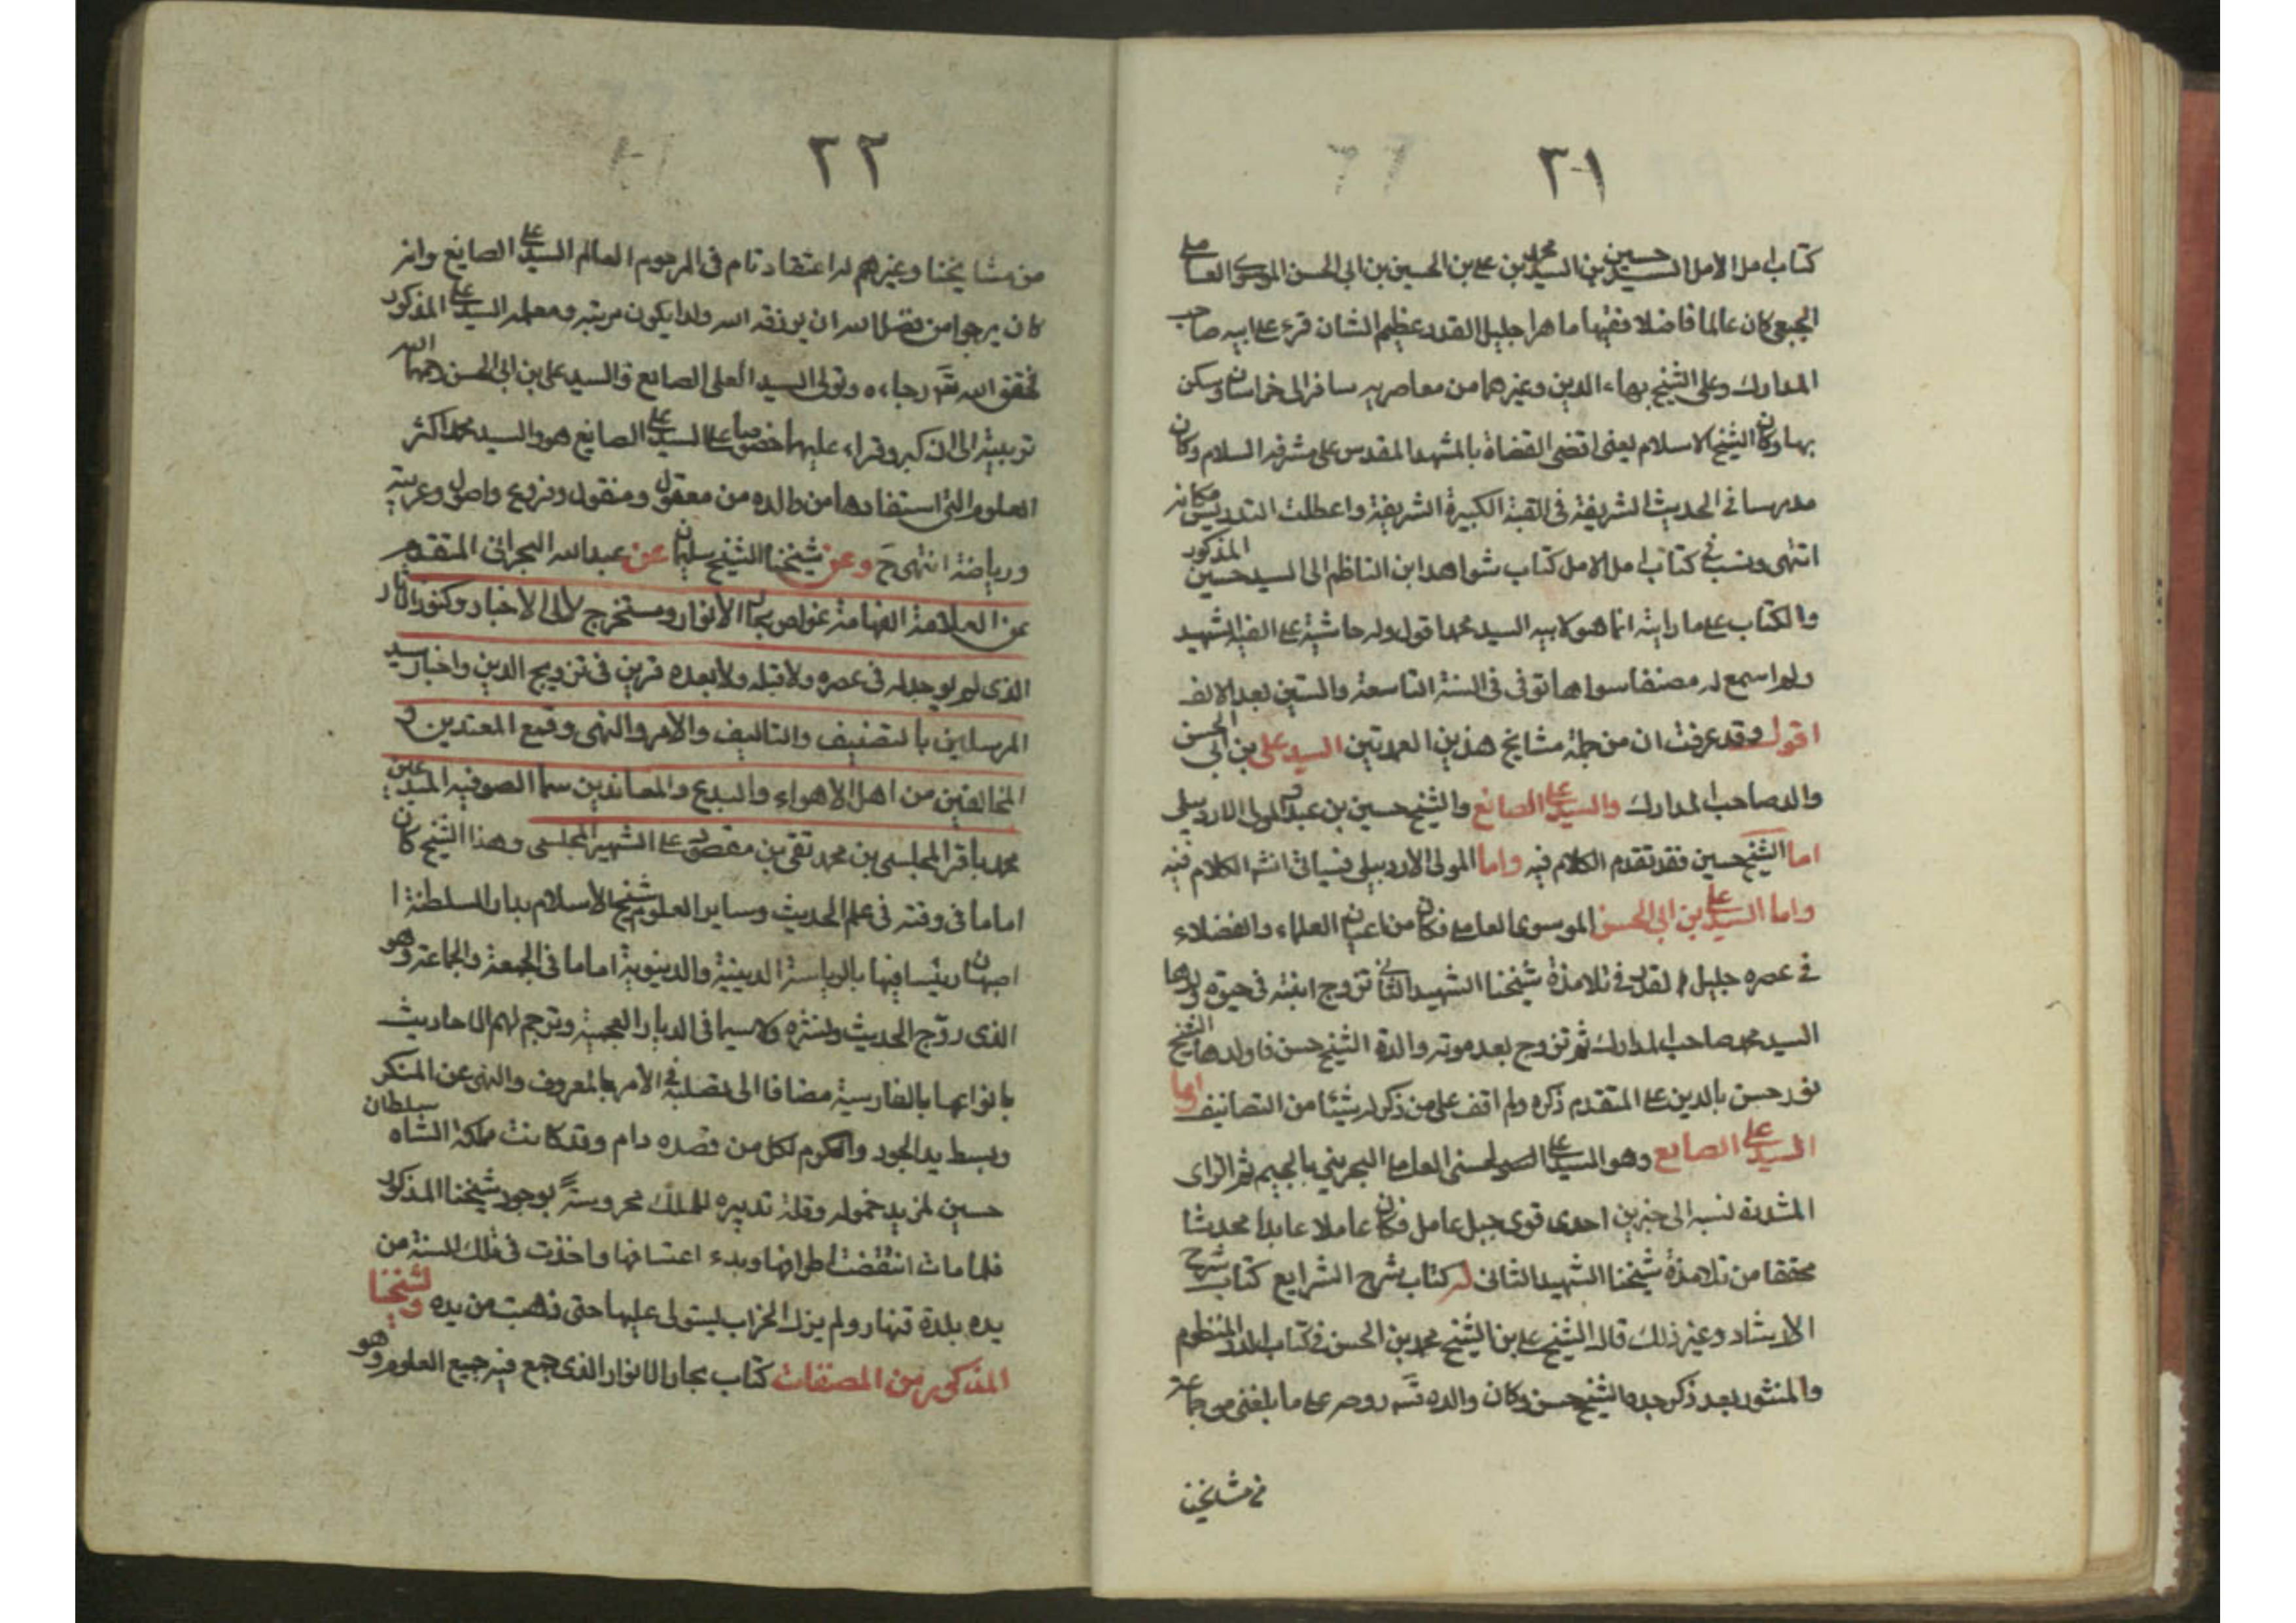 ٢١
كتاب امل الأمل السيد حسين بن السيد محمد بن علي بن الحسين بن ابي الحسن الموسوي العاملي
الجبعي كان عالما فاضلا فقيها ماهرا جليل القدر عظيم الشان قرء على ابيه صاحب
المدارك وعلى الشيخ بهاء الدين وغيرهما من معاصريه سافر الى خراسان وسكن
بها وكان الشيخ الاسلام يعني اقضى القضاة بالمشهد المقدس على مشرفه السلام وكان
مدرسا في الحديث الشريفة في القبة الكبيرة الشريفة واعطلت التدريس مكانه
انتهى ونسب في كتاب امل الامل كتاب شواهد ابن الناظم الى السيد حسين المذكور
والكتاب على ما رايته انما هو لابيه السيد محمد اقول وله حاشية على الفية الشهيد
ولم اسمع له مصنفا سواها توفى في السنة التاسعة والستين بعد الالف
اقول وقد عرفت ان من جملة مشايخ هذين العمدتين السيد علي بن ابي الحسن
والد صاحب المدارك والسيد علي الصانع والشيخ حسين بن عبد والمولى الاردبيلي
اما الشيخ حسين فقد تقدم الكلام فيه واما المولى الأردبيلي فسياتي انشه الكلام فيه
واما السيد علي بن ابي الحسن الموسوي العاملي فكان من اعيان العلماء والفضلاء
في عصره جليل القدر في تلامذة شيخنا الشهيد الثاني تزوج ابنته في حيوة
السيد محمد صاحب المدارك ثم تزوج بعد موته والدة الشيخ حسن فاولدها الشيخ
نور حسن بالدين علي المتقدم ذكره ولم اقف على من ذكر له شيئا من التصانيف واما
السيد علي الصانع وهو السيد علي الحسني العاملي البجريني بالجيم ثم الزاى
المشددة نسبه الى جزين احدى قوى جبل عامل فكان عاملا عابدا محدثا
محققا من تلامذة شيخنا الشهيد الثاني له كتاب شرح الشرايع كتاب شرح
الارشاد وغير ذلك قال الشيخ علي بن الشيخ محمد بن الحسن في كتاب الدر المنظوم
والمنثور بعد ذكر جده الشيخ حسن وكان والده قده روحه على ما بلغني من جماعة
من مشايخنا
٢٢
من مشايخنا وغيرهم له اعتقاد تام في المرحوم العالم السيد علي الصانع وانه
كان يرجوا من فضل الله ان يرزقه الله ولدا يكون مربيه ومعلمه السيد علي المذكور
فحقق الله تعه رجاءه وتولى السيد العلى الصانع والسيد على بن ابي الحسن رحمهما الله
تربيته الى ان كبر وقراء عليهما خصوصا على السيد علي الصانع هو والسيد محمد اكثر
العلوم التي استفادها من والده من معقول ومنقول وفروع واصول وعربية
ورياضة انتهى ح وعن شيخنا الشيخ سليمان عن عبد الله البحراني المتقدم
عن العلامة الفهامة غواص بحار الأنوار ومستخرج لالى الأخبار وكنوز الاثار
الذى لم يوجد له في عصره ولا قبله ولا بعده قرين في ترويج الدين واخبار سيد
المرسلين بالتصنيف والتاليف والامر والنهى وقمع المعتدين و
المخالفين من اهل الاهواء والبدع والمعاندين سما الصوفيه المبتدعين
محمد باقر المجلسي بن محمد تقي بن مقصود علي الشهير المجلسي وهذا الشيخ كان
اماما في وقته في علم الحديث وساير العلوم شيخ الأسلام بدار السلطنة ا
اصبهان رئيسا فيها بالرياسة الدينية والدنيوية اماما في الجمعة والجماعة وهو
الذى روّج الحديث ونشره ولا سيما في الديار العجمية وترجم لهم الاحاديث
بانواعها بالفارسية مضافا الى تصلبه في الأمر بالمعروف والنهى عن المنكر
وبسط يد الجود والكرم لكل من قصده دام وقد كانت مملكة الشاه سلطان
حسين لمزيد خموله وقلة تدبيره للملك محروسةً بوجود شيخنا المذكور
فلما مات انتقضت اطرافها وبدء اعتسافها واخذت في تلك السنة من
يده بلدة قنهار ولم يزل الخراب يستولى عليها حتى ذهبت من يده ولشيخنا
المذكور من المصنفات كتاب بحار الانوار الذي جمع فيه جميع العلوم وهو